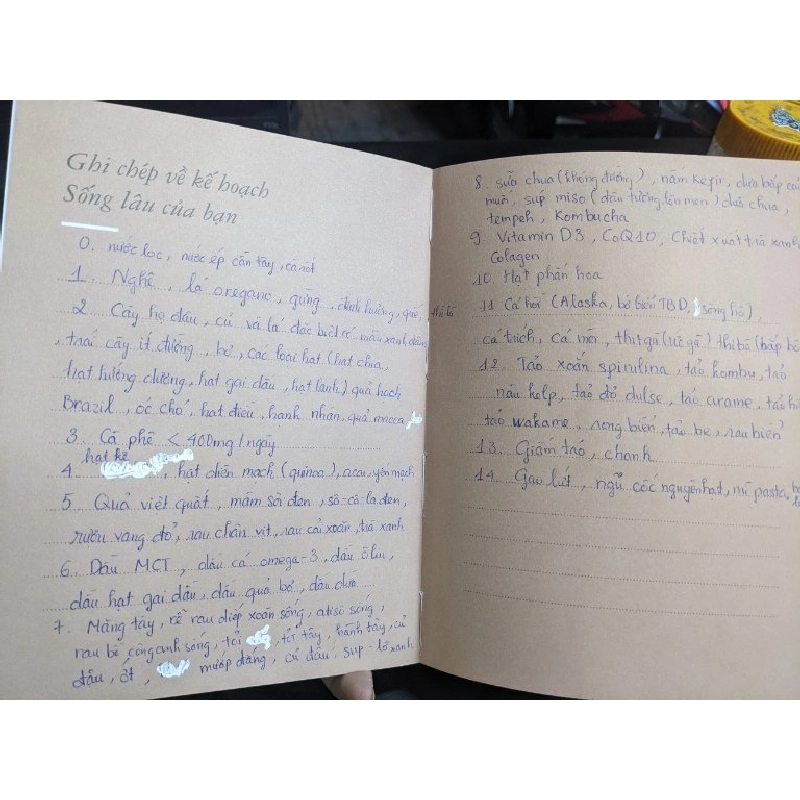 Ghi chép về kế hoạch
Sống lâu của bạn
0. nước lọc, nước ép cần tây, cà rốt
1. Nghệ, lá oregano, gừng, đinh hương, quế,
2. Cây họ đậu, củ và lá đặc biệt có màu xanh đậm
, trái cây ít đường, bơ, các loại hạt (hạt chia,
hạt hướng dương, hạt gai dầu, hạt lanh) quả hạch
Brazil, óc chó, hạt điều, hạnh nhân, quả macca,
3. Cà phê < 400mg/ngày
hạt kê
4. , hạt diêm mạch (quinoa), yến mạch
5. Quả việt quất, mâm sôi đen, sô-cô-la đen,
rượu vang đỏ, rau chân vịt, rau cải xoăn, trà xanh
6. Dầu MCT, dầu cá omega-3, dầu ôliu,
dầu hạt gai dầu, dầu quả bơ, dầu dừa
7. Măng tây, rễ rau diếp xoăn sống, atisô sống,
rau bồ công anh sống, tỏi , tỏi tây, hành tây, củ
đậu, ớt, mướp đắng, củ đậu. sup-lơ xanh
8. sữa chua (không đường), nấm kefir, dưa bắp cải
muối, súp miso (đậu tương lên men) dưa chua,
tempeh, Kombucha
9. Vitamin D3, CoQ10, Chiết xuất trà xanh
Colagen
10. Hạt phấn hoa
11. Cá hồi (Alaska, bờ biển TBD, sông hồ),
cá trích, cá mòi, thịt gà (ức gà) thịt bò (bắp bò
12. Tảo xoắn spirulina, tảo kombu, tảo
nâu kelp, tảo đỏ dulse, tảo arame, tảo
tảo wakame, rong biển, tảo bẹ, rau biển
13. Giấm táo, chanh
14. Gạo lứt, ngũ cốc nguyên hạt, mì pasta,